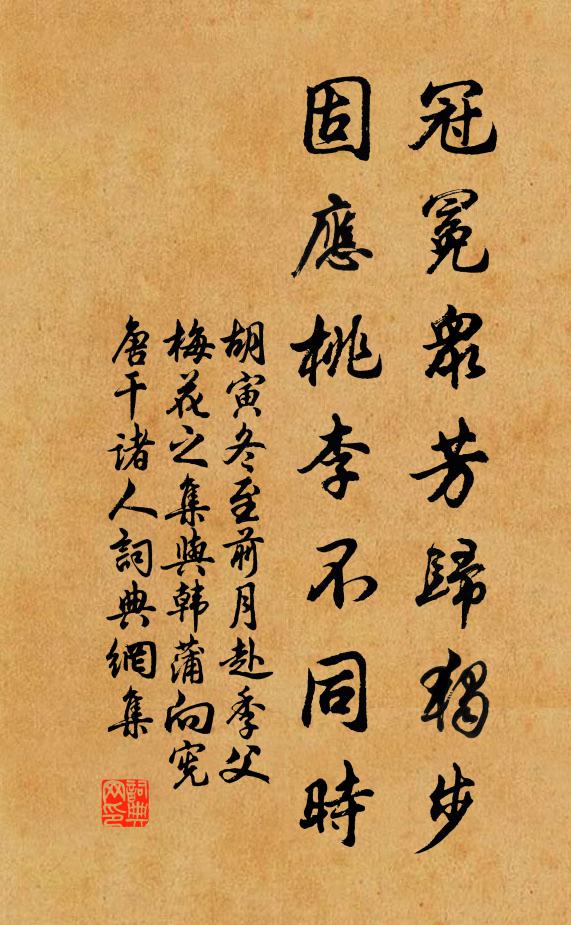 冠冕眾芳歸獨步
固應桃李不同時
胡寅冬至前月赴季父
梅花之集與韩蒲向宪
唐干诸人詞典網集
詞典
网印